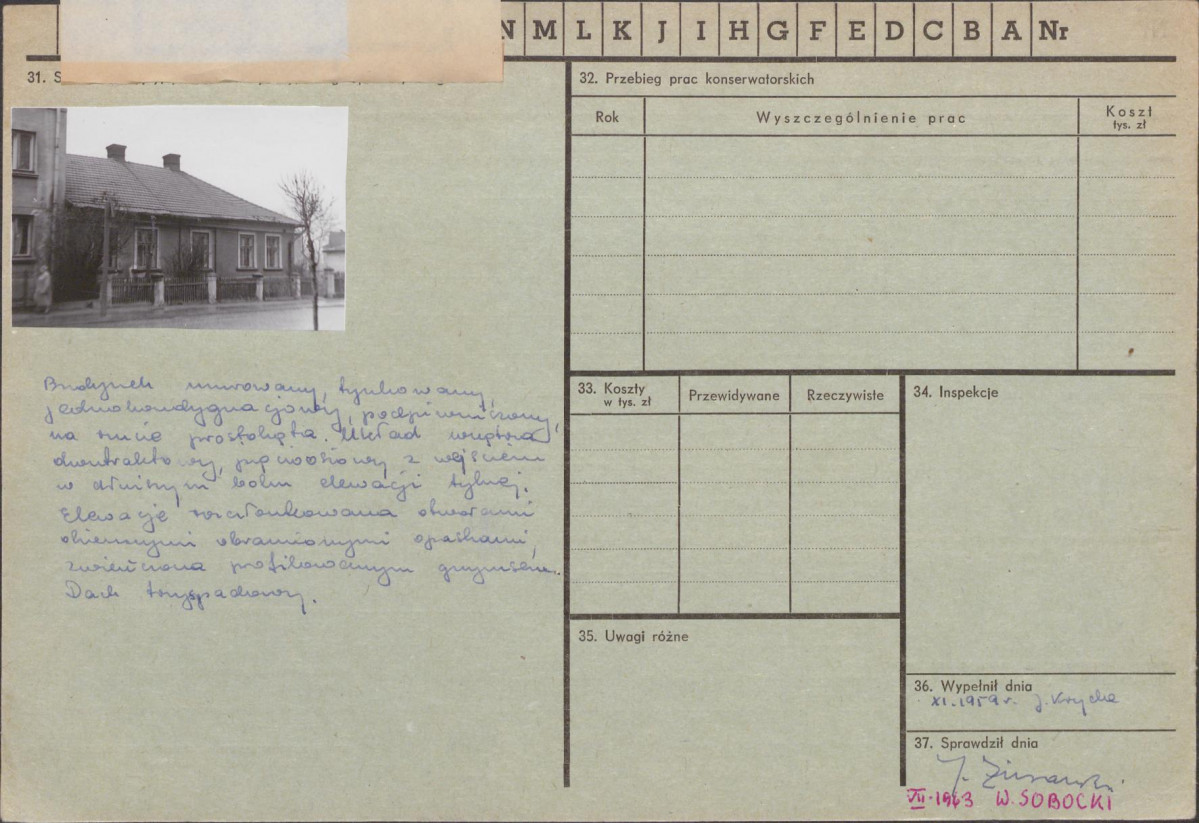 N M L K J I H G F E D C B A Nr
31. S
32. Przebieg prac konserwatorskich
Rok Wyszczególnienie prac Koszt
tys. zł
Budynek murowany, tynkowany,
jednokondygnacjowy, podpiwniczony,
na rzucie prostokąta. Układ wnętrza
dwutraktowy, pięcioosiowy z wejściem
w dłuższym boku elewacji tylnej.
Elewacje rozczłonkowana otworami
okiennymi obramionymi opaskami,
zwieńczona profilowanym gzymsem.
Dach trzyspadowy.
33. Koszty
w tys. zł
Przewidywane Rzeczywiste
34. Inspekcje
35. Uwagi różne
36. Wypełnił dnia
XI. 1959 r. J. Krycha
37. Sprawdził dnia
VII. 1963 W. SOBOCKI